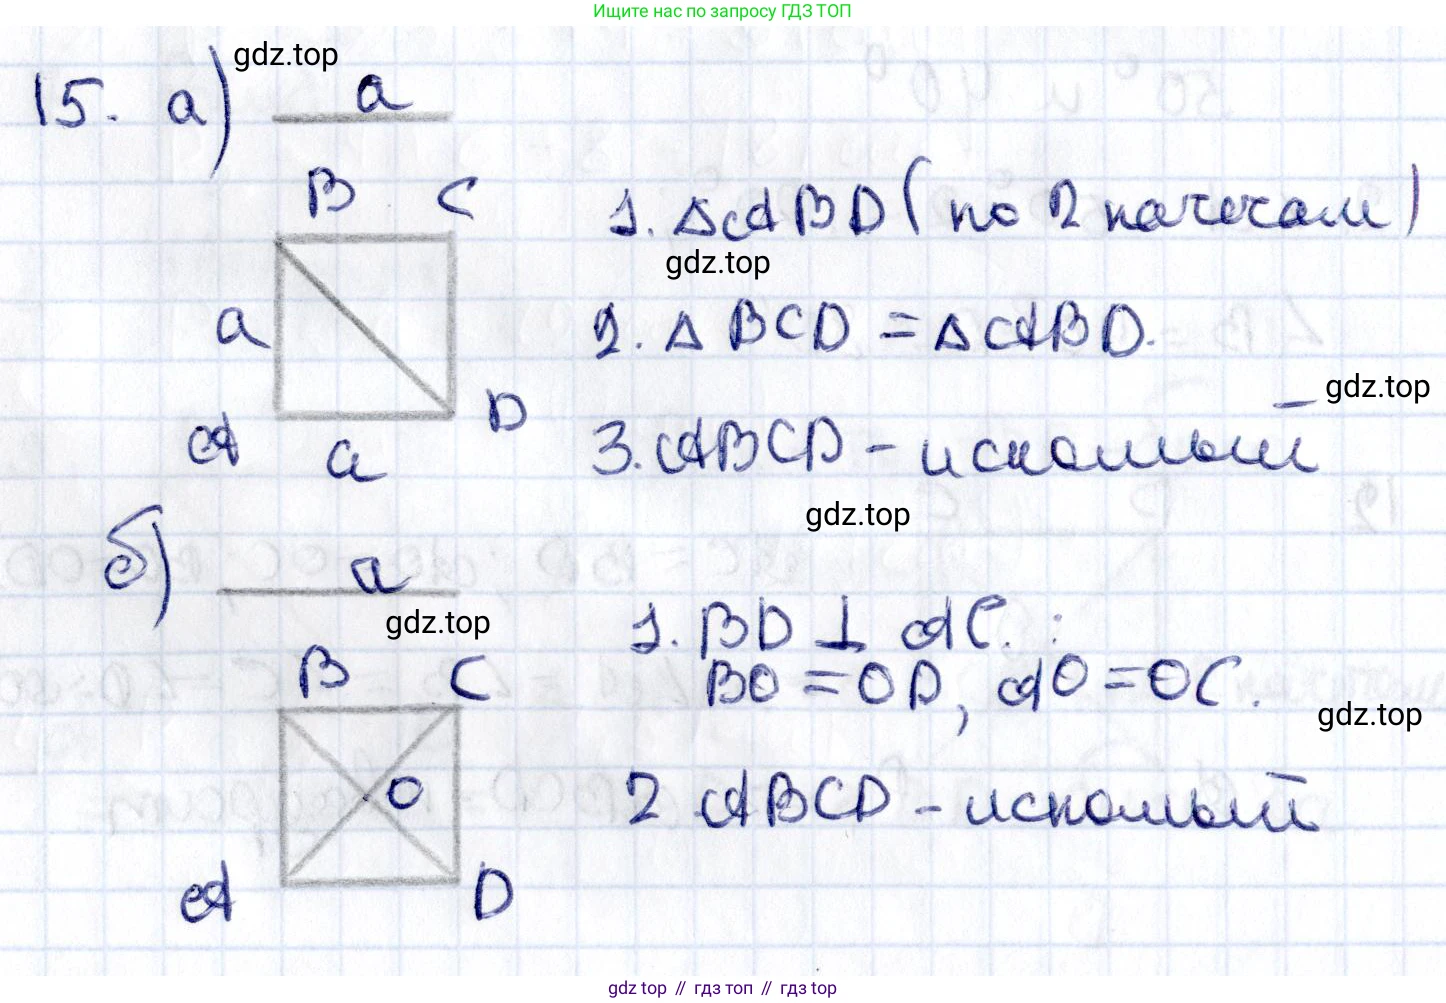 Ищите нас по запросу ГДЗ ТОП
gdz.top
15. а) a
B C
1. ΔABD (по 2 катетам)
gdz.top
a
2. ΔBCD = ΔABD.
gdz.top
A a D
3. ABCD - искомый
gdz.top
б) a
gdz.top
1. BD ⊥ AC. :
BO = OD, AO = OC.
gdz.top
B C
O
2 ABCD - искомый
A D
gdz top // гдз топ // гдз top